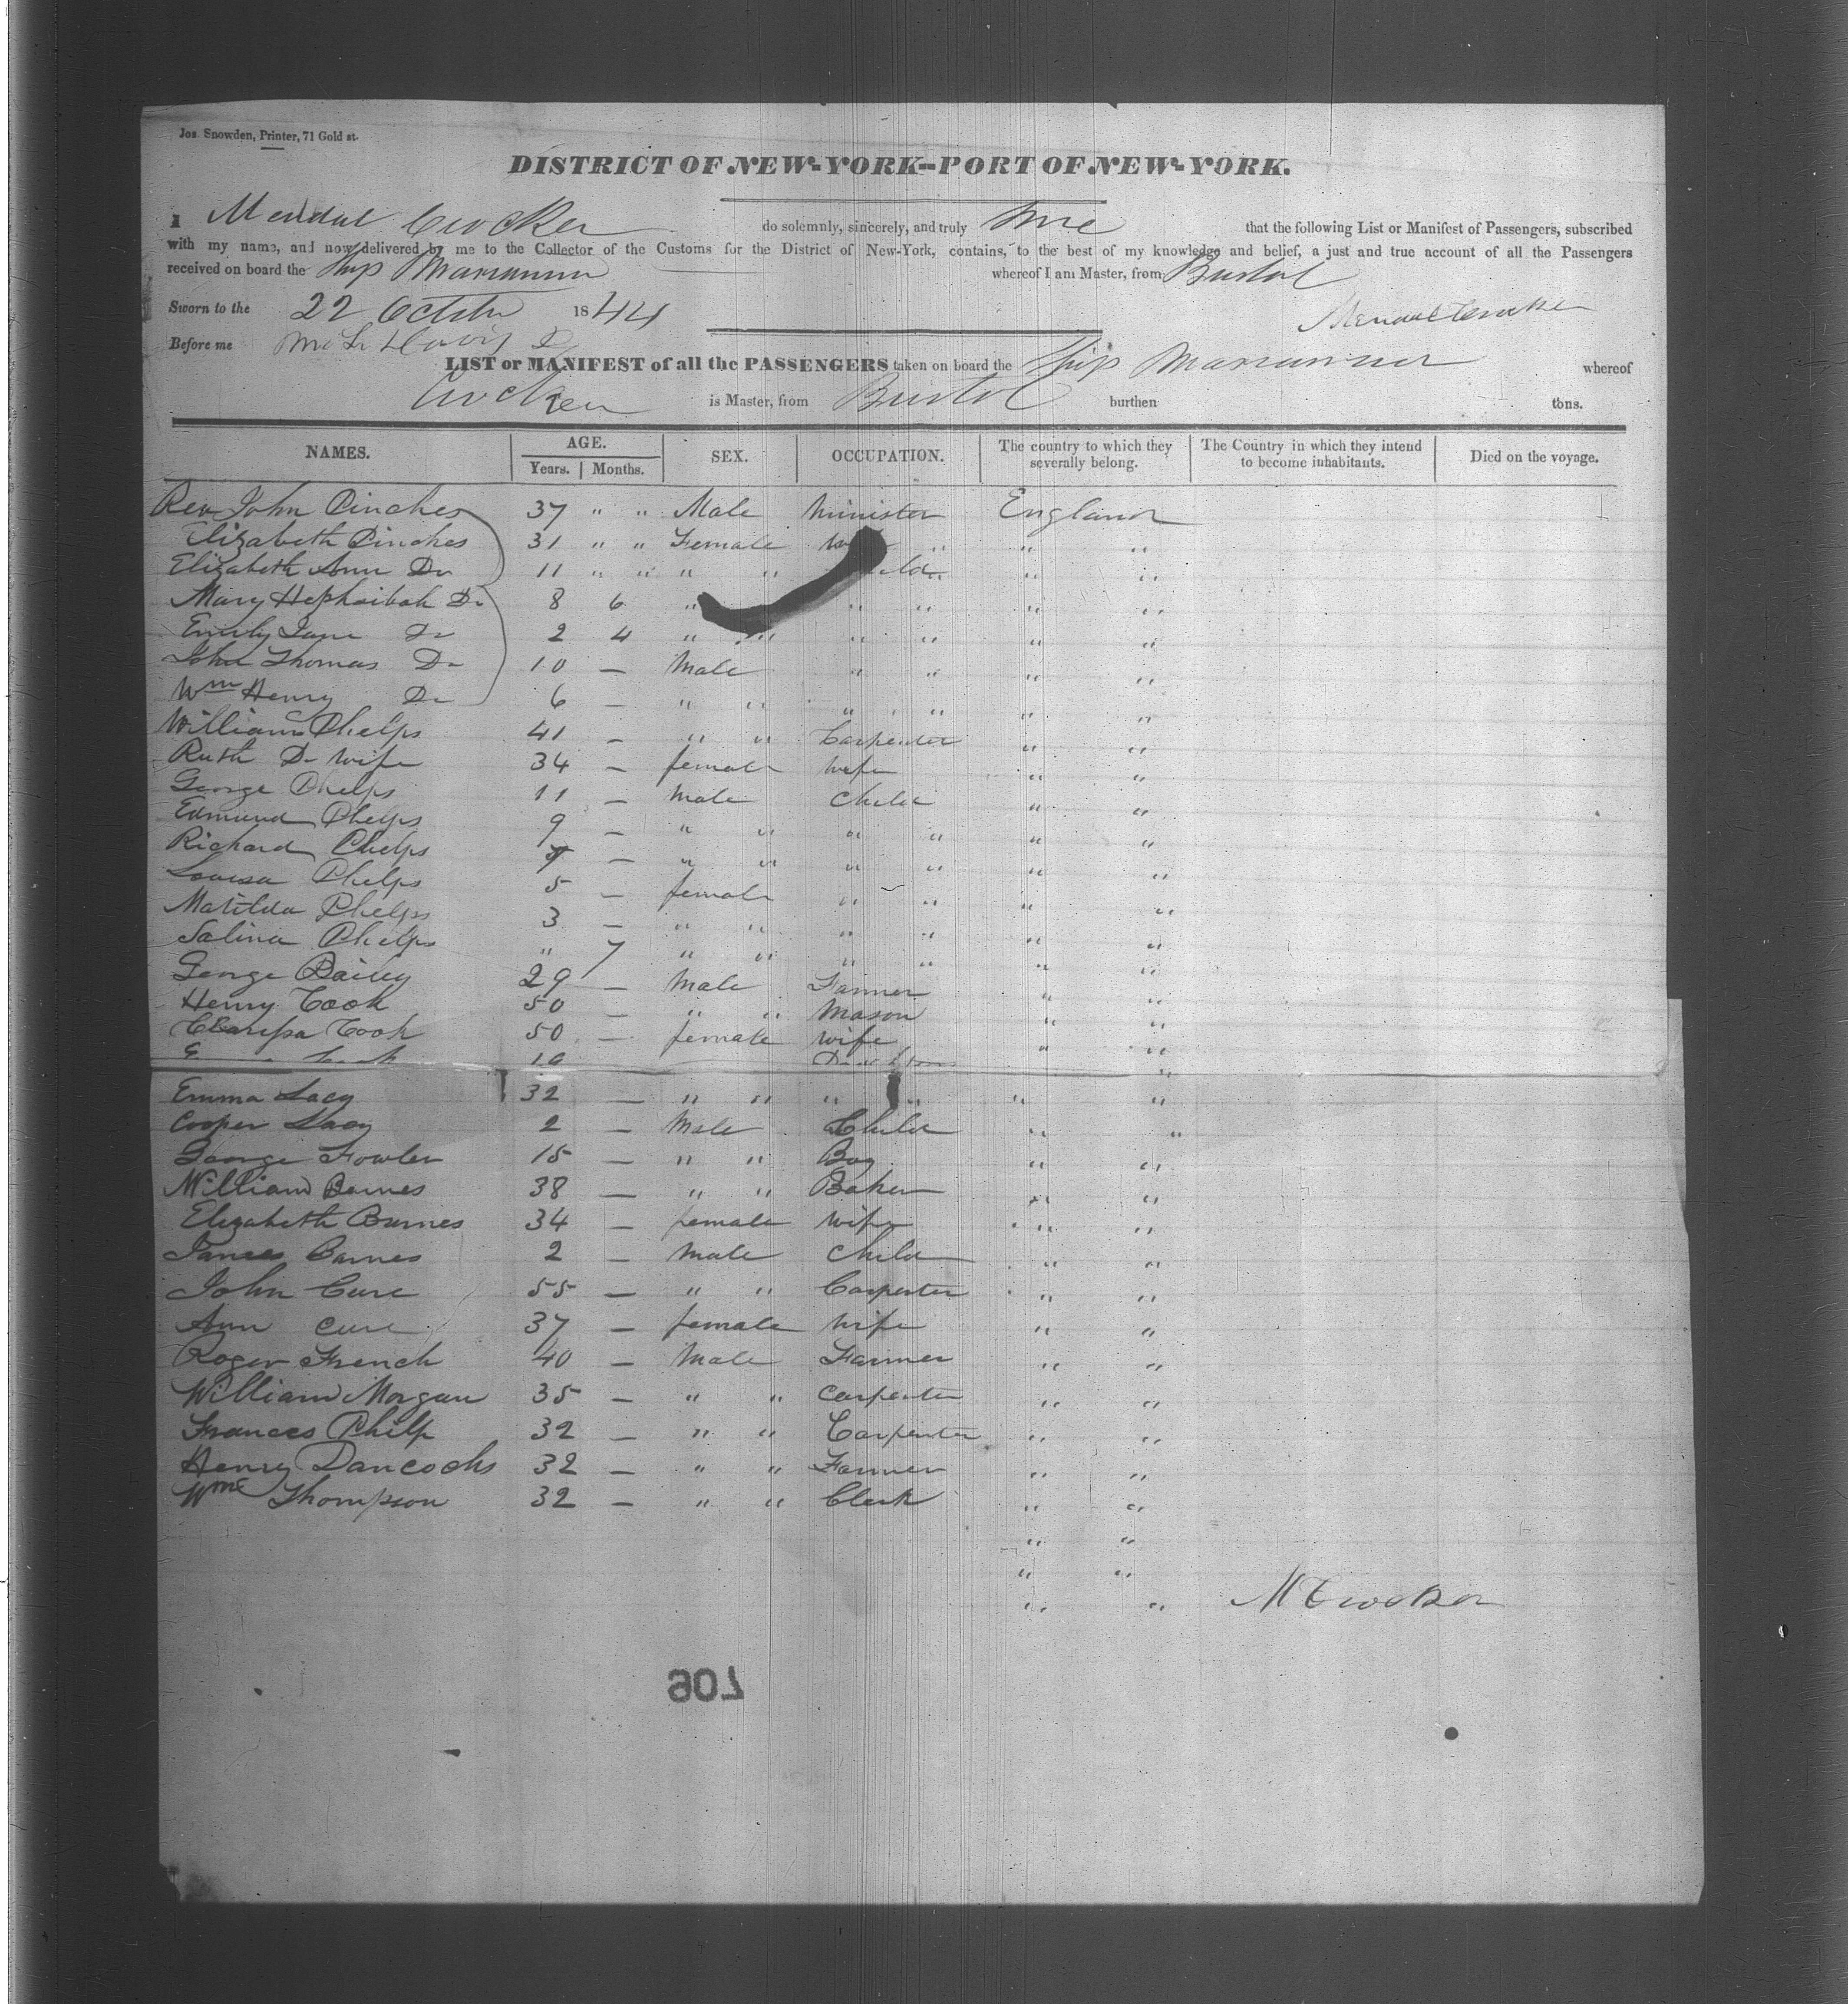 Jos. Snowden, Printer, 71 Gold st.
DISTRICT OF NEW-YORK--PORT OF NEW-YORK.
I Mendal Crocker do solemnly, sincerely, and truly that the following List or Manifest of Passengers, subscribed
with my name, and now delivered by me to the Collector of the Customs for the District of New-York, contains, to the best of my knowledge and belief, a just and true account of all the Passengers
received on board the Ship whereof I am Master, from Bristol
Sworn to the 22 October 1844 Mendal Crocker
Before me
LIST or MANIFEST of all the PASSENGERS taken on board the Ship whereof
Crocker is Master, from Bristol burthen tons.
NAMES. AGE. Years. Months. SEX. OCCUPATION. The country to which they severally belong. The Country in which they intend to become inhabitants. Died on the voyage.
Rev John Pinches 37 " " Male Minister England
Elizabeth Pinches 31 " " Female " " "
Elizabeth Ann Do 11 " " " " " "
Mary Hephzibah Do 8 6 " " " " "
Emily Jane Do 2 4 " " " " " "
John Thomas Do 10 — Male " " " "
Wm Henry Do 6 — " " " " " "
William Phelps 41 — " " Carpenter " "
Ruth Do wife 34 — female wife " "
George Phelps 11 — Male Child " "
Edmund Phelps 9 — " " " " " "
Richard Phelps 7 — " " " " " "
Louisa Phelps 5 — female " " " "
Matilda Phelps 3 — " " " " " "
Salina Phelps " 7 " " " " " "
George Bailey 29 — Male Farmer " "
Henry Cook 50 — " " Mason " "
Clarissa Cook 50 — female wife " "
Emma Lacy 32 — " " " " " "
Cooper Lacy 2 — Male Child " "
George Fowler 15 — " " Boy " "
William Barnes 38 — " " Baker " "
Elizabeth Barnes 34 — female wife " "
James Barnes 2 — Male Child " "
John Cure 55 — " " Carpenter " "
Ann Cure 37 — female wife " "
Roger French 40 — Male Farmer " "
William Morgan 35 — " " Carpenter " "
Frances Philp 32 — " " Carpenter " "
Henry Dancocks 32 — " " Farmer " "
Wm Thompson 32 — " " Clerk " "
" "
" "
" " M Crocker
907